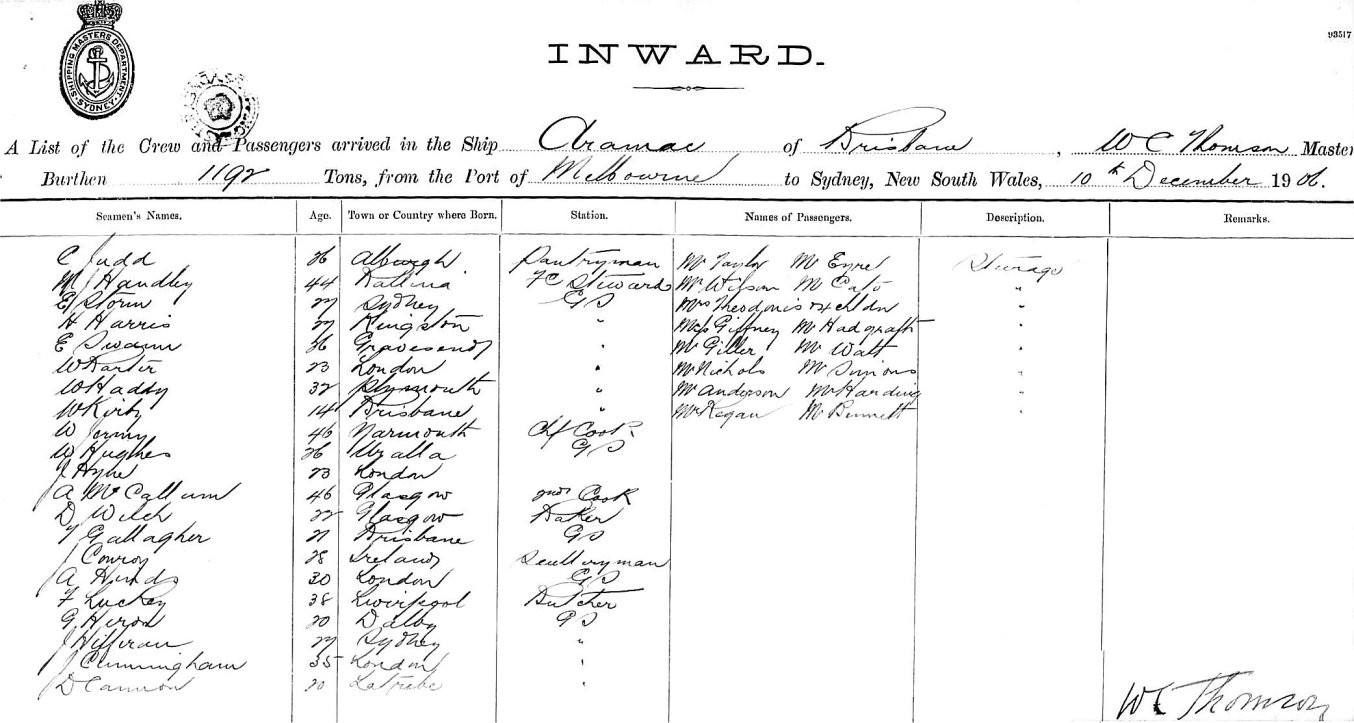 93517
SHIPPING MASTERS DEPARTMENT SYDNEY
INWARD.
A List of the Crew and Passengers arrived in the Ship Aramac of Brisbane, W C Thomson Master
Burthen 1192 Tons, from the Port of Melbourne to Sydney, New South Wales, 10th December 1906.
Seamen's Names. Age. Town or Country where Born. Station. Names of Passengers. Description. Remarks.
C Judd 26 Pantryman Mr Taylor Mr Eyre Steerage
M J Handley 44 Ballina FC Steward Mr Wilson Mr Cato "
E Storm 27 Sydney GS Mrs Theodonis & 4 chldn "
H Harris 27 Kingston " Giffney Mr Hadgraft "
E Swann 26 Gravesend " Mr Giller Mr Watt "
W 23 London " Mr Nichols Mr Simons "
W Haddy 32 Plymouth " Mr Anderson Mr Harding "
W Kirby 14 Brisbane " Mr Regan Mr Bennett "
W Jermy 46 Yarmouth Chf Cook
W Hughes 26 Uralla GS
J Hyne 23 London
A McCallum 46 Glasgow 2nd Cook
D Welch 22 Glasgow Baker
T Gallagher 21 Brisbane GS
J Conroy 28 Ireland Scullaryman
A Hinds 30 London GS
F Luckey 38 Liverpool Butcher
G Heron 20 Dalby GS
J Hifferan 27 Sydney "
J Cunningham 35 London "
D Cannon 20 Latrobe "
W C Thomson